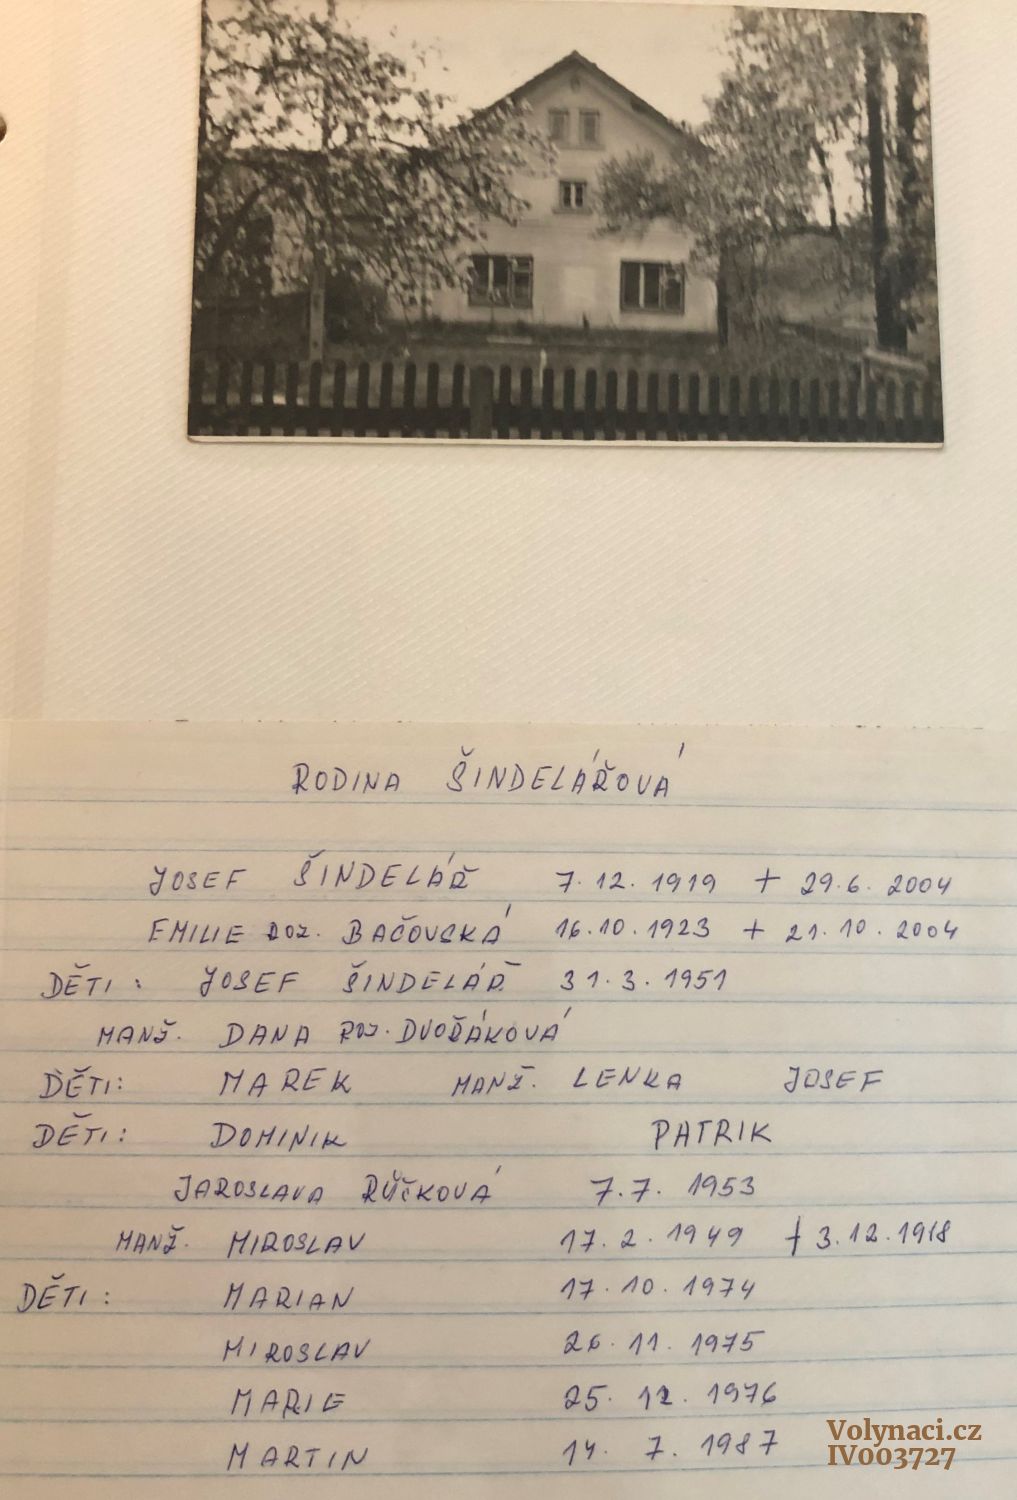 RODINA ŠINDELÁŘOVÁ
JOSEF ŠINDELÁŘ 7.12.1919 + 29.6.2004
EMILIE ROZ. BAČOVSKÁ 16.10.1923 + 21.10.2004
DĚTI: JOSEF ŠINDELÁŘ 31.3.1951
MANŽ. DANA ROZ. DVOŘÁKOVÁ
DĚTI: MAREK MANŽ. LENKA JOSEF
DĚTI: DOMINIK PATRIK
JAROSLAVA RŮČKOVÁ 7.7. 1953
MANŽ. MIROSLAV 17.2.1949 + 3.12.1918
DĚTI: MARIAN 17.10.1974
MIROSLAV 26.11.1975
MARIE 25.12.1976
MARTIN 14.7.1987
Volynaci.cz
IV003727